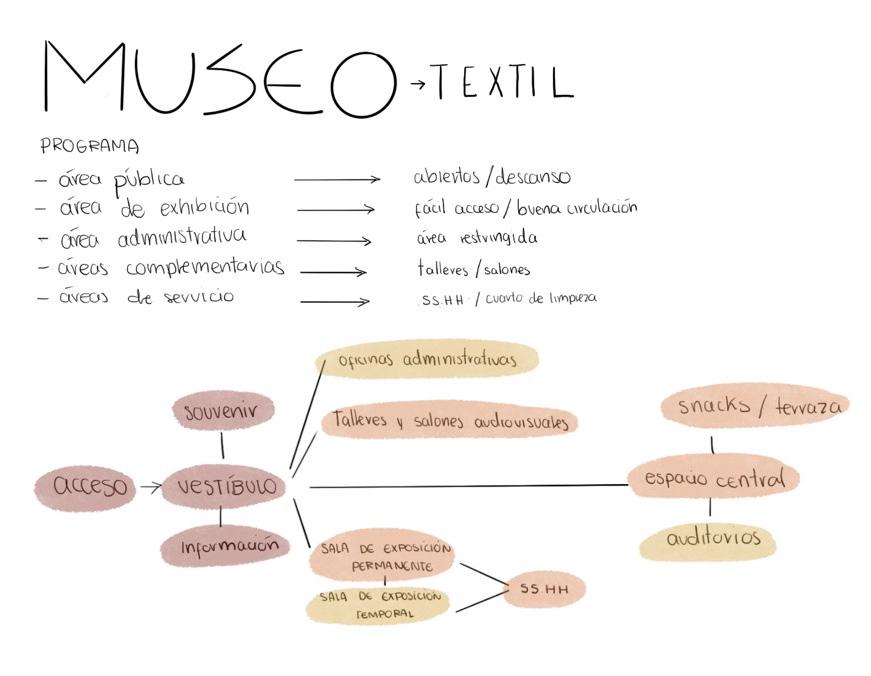 MUSEO → TEXTIL
PROGRAMA
- área pública → abiertos / descanso
- área de exhibición → fácil acceso / buena circulación
- área administrativa → área restringida
- áreas complementarias → talleres / salones
- áreas de servicio → SS.HH / cuarto de limpieza
oficinas administrativas
souvenir
Talleres y salones audiovisuales
snacks / terraza
acceso → VESTÍBULO
espacio central
Información
auditorios
SALA DE EXPOSICIÓN
PERMANENTE
SALA DE EXPOSICIÓN
TEMPORAL
SS.HH